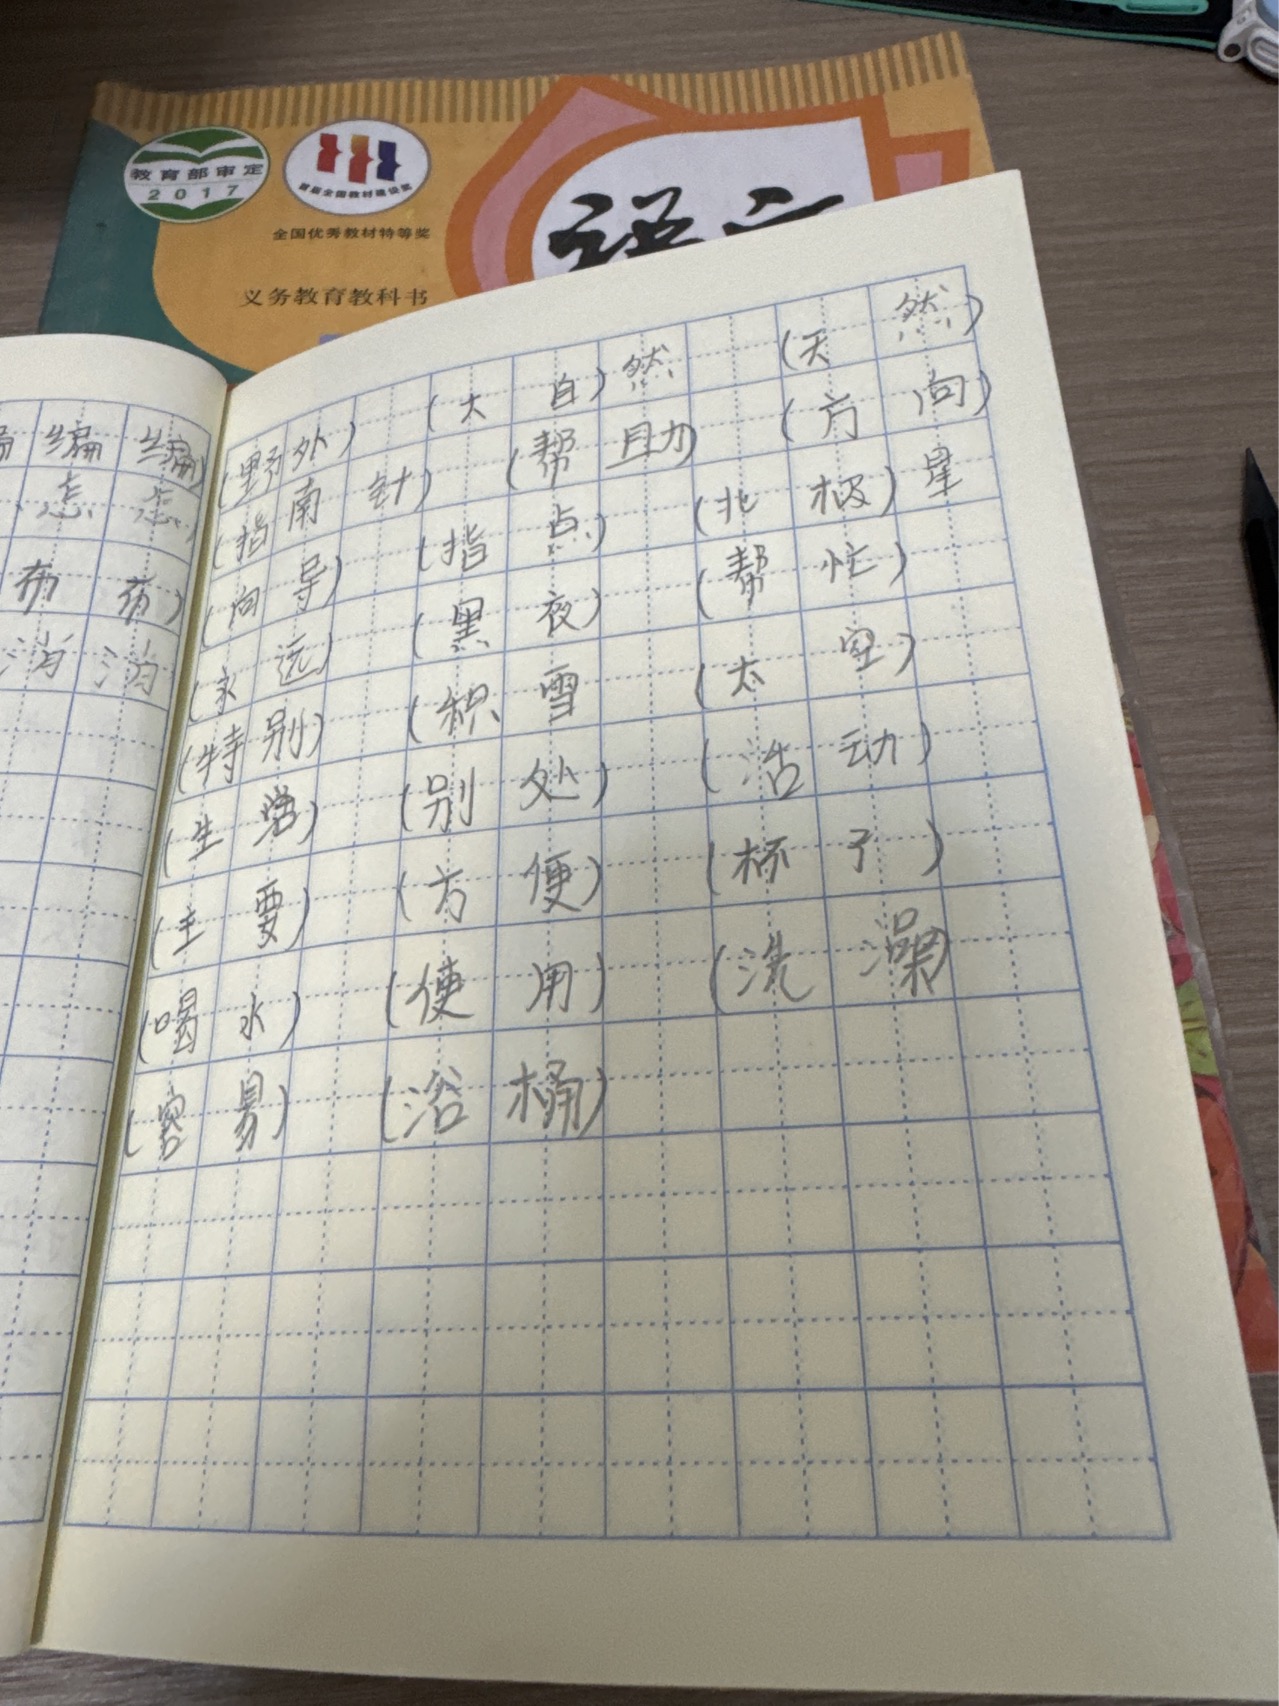 教育部审定
2017
首届全国教材建设奖
全国优秀教材特等奖
义务教育教科书
语文
(野外) (大自)然 (天然)
(指南针) (帮助) (方向)
(向导) (指点) (北极)星
(永远) (黑夜) (帮忙)
(特别) (积雪) (太空)
(生活) (别处) (活动)
(主要) (方便) (杯子)
(喝水) (使用) (洗澡)
(容易) (浴桶)
编 编)
怎 怎)
消 消